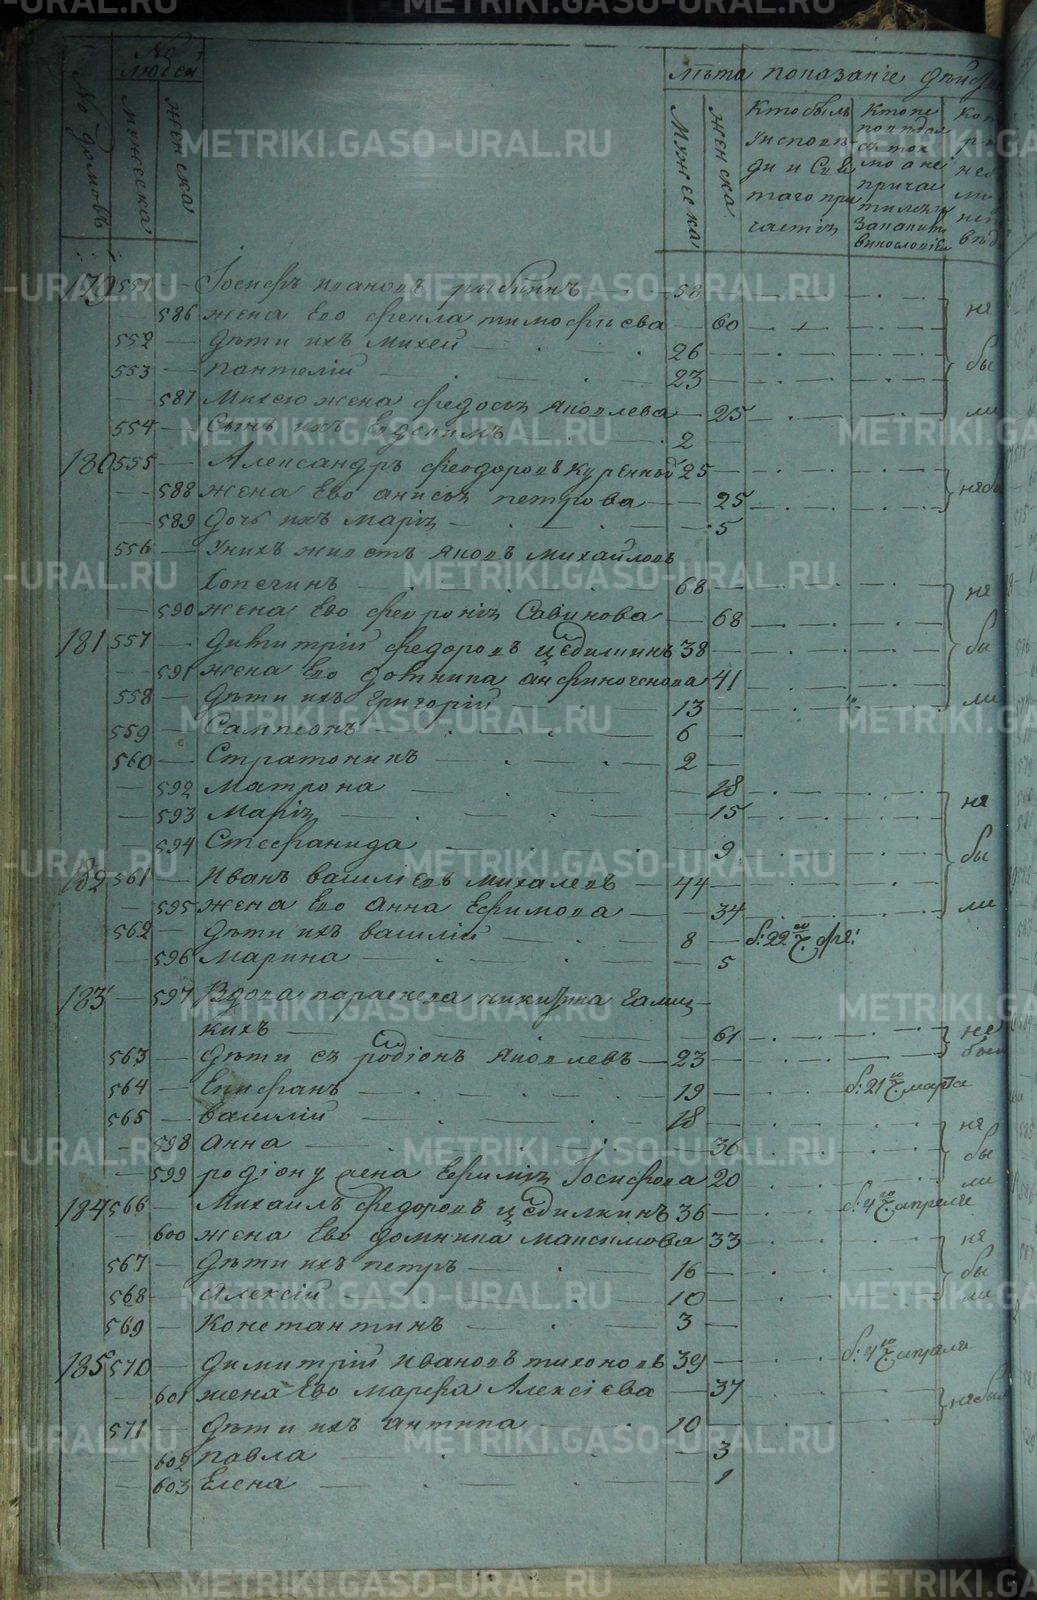 METRIKI.GASO-URAL.RU
№ домовъ
№ людей
мужеска
женска
Лѣта
показанiе дѣйст
Мужеска
женска
Кто былъ
Уисповѣ
ди и Свя
таго при
частiя
Кто не
повѣдал
ся ток
мо а не
причас
тился
179 551 — Iосифъ ивановъ рыбинъ — 58
— 586 жена Ево фекла тимофѣева — 60
552 — дѣти ихъ михей — 26
553 — пантелiй — 23
— 587 михею жена федосья яковлева — 25
554 — Сынъ ихъ Евдокимъ — 2
180 555 — Александръ феодоровъ куренной 25
— 588 жена Ево анисья петрова — 25
— 589 дочь ихъ марiя — 5
556 — Унихъ живетъ яковъ михайловъ
Копегинъ — 68
— 590 жена Ево феврония Савинова — 68
181 557 — димитрiй федоровъ цедилкинъ 38
— 591 жена Ево домника анфиногенова 41
558 — дѣти ихъ григорiй — 13
559 — Сампсонъ — 6
560 — Стратоникъ — 2
— 592 матрона — 18
— 593 марiя — 15
— 594 Стефанида — 9
182 561 — иванъ василiевъ михалевъ — 44
— 595 жена Ево анна Ефимова — 34
562 — дѣти ихъ василiй — 8 — б: 22го ч. фев:
— 596 марина — 5
183 — 597 Вдова параскева никитина галиц
кихъ — 61
563 — дѣти ея родiонъ яковлевъ — 23
564 — Епифанъ — 19 — б: 21го ч. марта
565 — василiй — 18
— 598 анна — 36
— 599 родiону жена Ефимiя Iосифова 20
184 566 — михаилъ федоровъ цедилкинъ 36 — б: 4го ч. апреля
— 600 жена Ево домника максимова 33
567 — дѣти ихъ петръ — 16
568 — Алексiй — 10
569 — константинъ — 3
185 570 — димитрiй ивановъ тихоновъ 39 — б: 4го ч. апреля
— 601 жена Ево марфа Алексiева — 37
571 — дѣти ихъ антипа — 10
— 602 павла — 3
— 603 Елена — 1
не
бы
ли